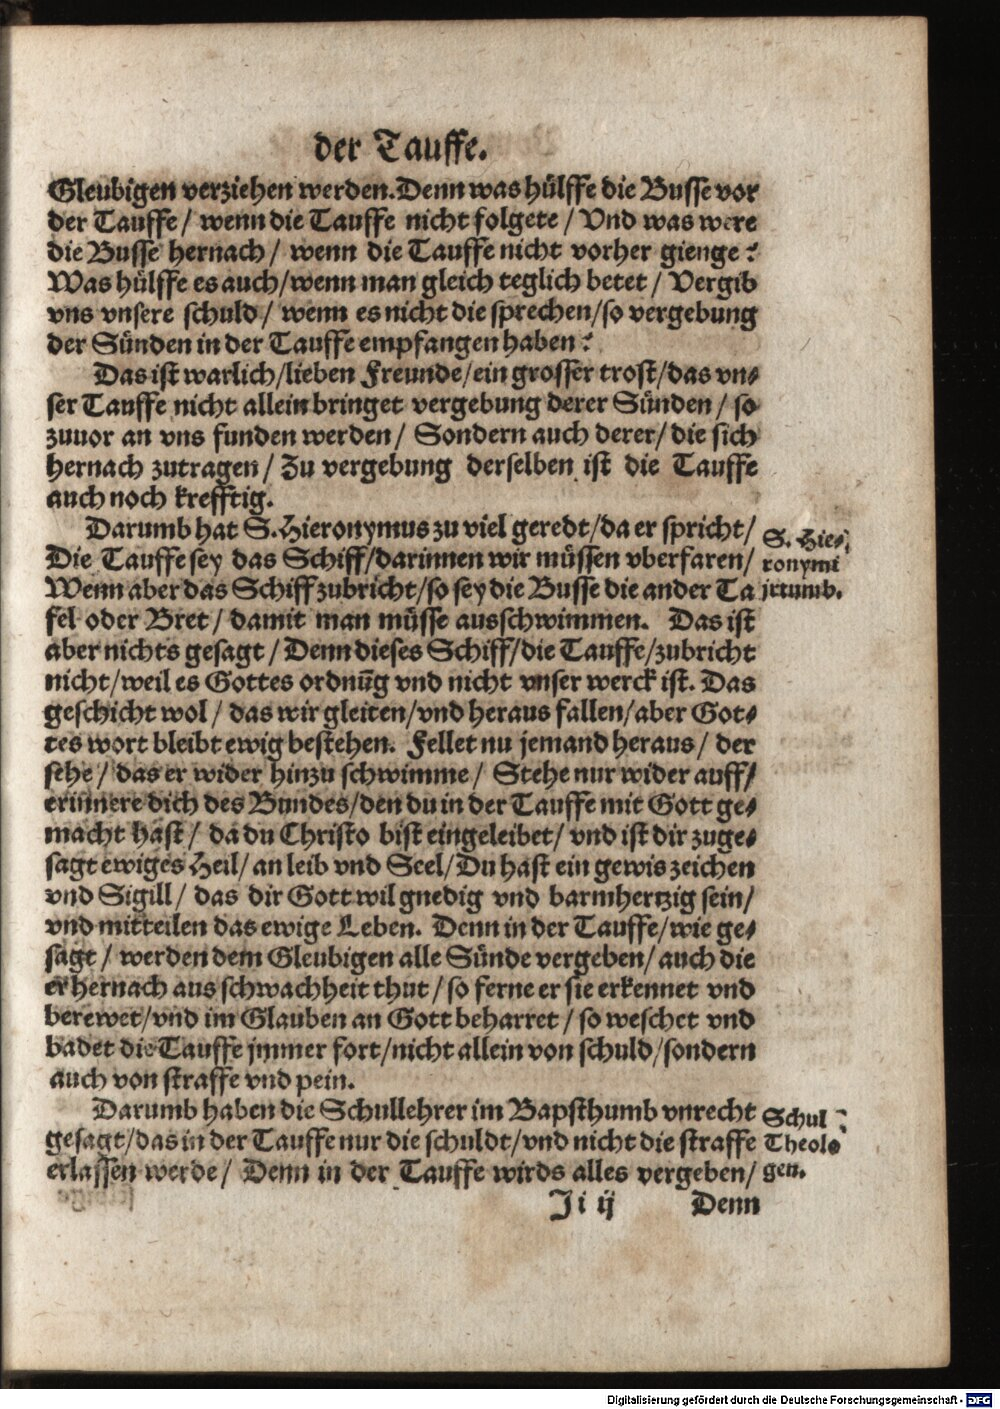 der Tauffe.
Gleubigen verziehen werden. Denn was hülffe die Busse vor
der Tauffe / wenn die Tauffe nicht folgete / Vnd was were
die Busse hernach / wenn die Tauffe nicht vorher gienge?
Was hülffe es auch / wenn man gleich teglich betet / Vergib
vns vnsere schuld / wenn es nicht die sprechen / so vergebung
der Sünden in der Tauffe empfangen haben?
Das ist warlich / lieben Freunde / ein grosser trost / das vn⸗
ser Tauffe nicht allein bringet vergebung derer Sünden / so
zuuor an vns funden werden / Sondern auch derer / die sich
hernach zutragen / Zu vergebung derselben ist die Tauffe
auch noch krefftig.
Darumb hat S. Hieronymus zu viel geredt / da er spricht /
Die Tauffe sey das Schiff / darinnen wir müssen vberfaren /
Wenn aber das Schiff zubricht / so sey die Busse die ander Ta
fel oder Bret / damit man müsse ausschwimmen. Das ist
aber nichts gesagt / Denn dieses Schiff / die Tauffe / zubricht
nicht / weil es Gottes ordnūg vnd nicht vnser werck ist. Das
geschicht wol / das wir gleiten / vnd heraus fallen / aber Got⸗
tes wort bleibt ewig bestehen. Fellet nu jemand heraus / der
sehe / das er wider hinzu schwimme / Stehe nur wider auff /
erinnere dich des Bundes / den du in der Tauffe mit Gott ge⸗
macht hast / da du Christo bist eingeleibet / vnd ist dir zuge⸗
sagt ewiges Heil / an leib vnd Seel / Du hast ein gewis zeichen
vnd Sigill / das dir Gott wil gnedig vnd barmhertzig sein /
vnd mitteilen das ewige Leben. Denn in der Tauffe / wie ge⸗
sagt / werden dem Gleubigen alle Sünde vergeben / auch die
er hernach aus schwachheit thut / so ferne er sie erkennet vnd
berewet / vnd im Glauben an Gott beharret / so weschet vnd
badet die Tauffe jmmer fort / nicht allein von schuld / sondern
auch von straffe vnd pein.
Darumb haben die Schullehrer im Bapsthumb vnrecht
gesagt / das in der Tauffe nur die schuldt / vnd nicht die straffe
erlassen werde / Denn in der Tauffe wirds alles vergeben /
Ji ij Denn
S. Hie⸗
ronymi
jrtumb.
Schul
Theolo
gen.
Digitalisierung gefördert durch die Deutsche Forschungsgemeinschaft - DFG